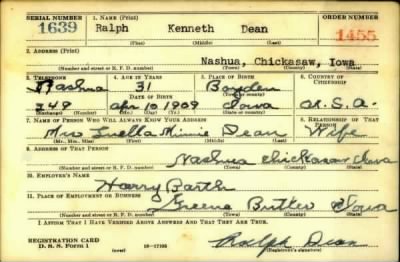 SERIAL NUMBER 1. NAME (Print) ORDER NUMBER
1639 Ralph Kenneth Dean 1455
(First) (Middle) (Last)
2. ADDRESS (Print)
Nashua, Chickasaw, Iowa
(Number and street or R. F. D. number) (Town) (County) (State)
3. TELEPHONE 4. AGE IN YEARS 5. PLACE OF BIRTH 6. COUNTRY OF CITIZENSHIP
Nashua 31 Boyden
DATE OF BIRTH (Town or county)
249 Apr 10 1909 Iowa U.S.A.
(Exchange) (Number) (Mo.) (Day) (Yr.) (State or country)
7. NAME OF PERSON WHO WILL ALWAYS KNOW YOUR ADDRESS 8. RELATIONSHIP OF THAT PERSON
Mrs Luella Minnie Dean Wife
(Mr., Mrs., Miss) (First) (Middle) (Last)
9. ADDRESS OF THAT PERSON
Nashua Chickasaw Iowa
(Number and street or R. F. D. number) (Town) (County) (State)
10. EMPLOYER'S NAME
Harry Barth
11. PLACE OF EMPLOYMENT OR BUSINESS
Greene Butler Iowa
(Number and street or R. F. D. number) (Town) (County) (State)
I AFFIRM THAT I HAVE VERIFIED ABOVE ANSWERS AND THAT THEY ARE TRUE.
REGISTRATION CARD
D. S. S. Form 1 (over) 16-17105 Ralph Dean
(Registrant's signature)